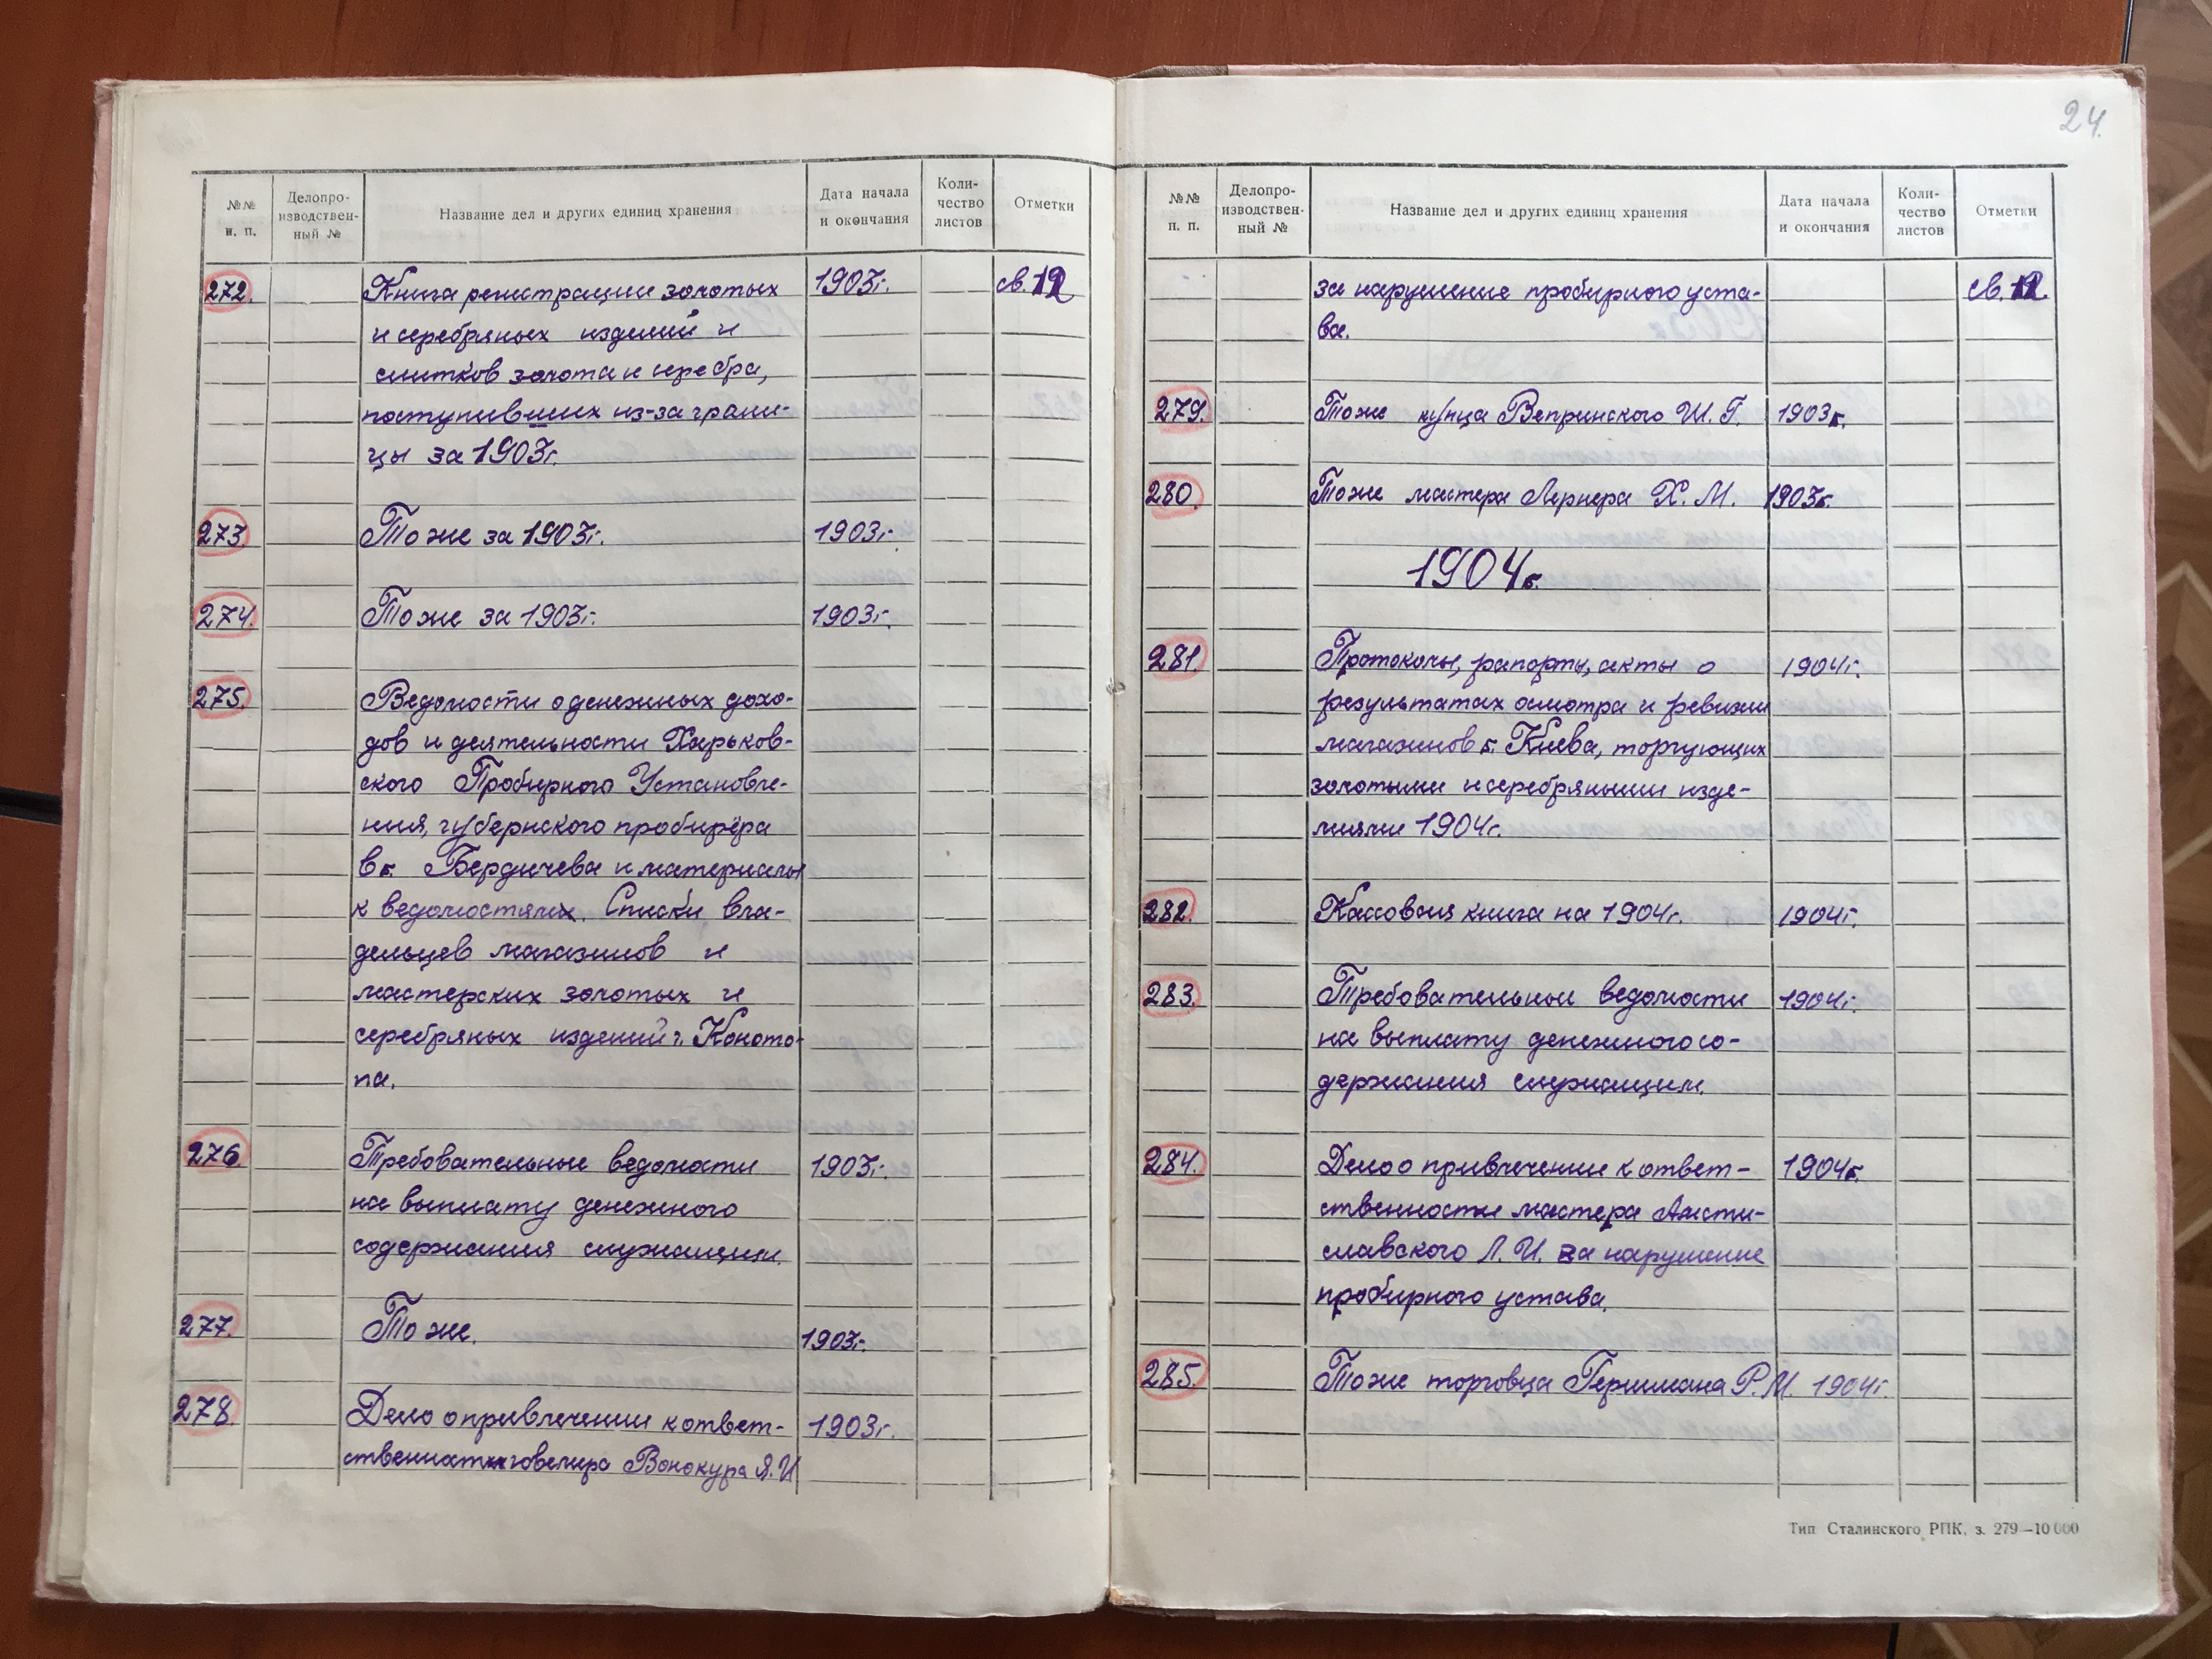 №№ п. п. Делопро-изводствен-ный № Название дел и других единиц хранения Дата начала и окончания Коли-чество листов Отметки
272. Книга регистрации золотых 1903г. св. 12
и серебряных изделий и
слитков золота и серебра,
поступивших из-за грани-
цы за 1903г.
273. То же за 1903г. 1903г.
274. То же за 1903г. 1903г.
275. Ведомости о денежных дохо-
дов и деятельности Харьков-
ского Пробирного Установле-
ния, губернского пробирера
в г. Бердичева и материалы
к ведомостям. Списки вла-
дельцев магазинов и
мастерских золотых и
серебряных изделий г. Коното-
па.
276. Требовательные ведомости 1903г.
на выплату денежного
содержания служащим.
277. То же. 1903г.
278. Дело о привлечении к ответ- 1903г.
ственности ювелира Вонокура Я. И
24.
№№ п. п. Делопро-изводствен-ный № Название дел и других единиц хранения Дата начала и окончания Коли-чество листов Отметки
за нарушение пробирного уста- св. 12.
ва.
279. То же купца Вепринского Ш. Г. 1903г.
280. То же мастера Лернера Х. М. 1903г.
1904г.
281. Протоколы, рапорты, акты о 1904г.
результатах осмотра и ревизии
магазинов г. Киева, торгующих
золотыми и серебряными изде-
лиями 1904г.
282. Кассовая книга на 1904г. 1904г.
283. Требовательные ведомости 1904г.
на выплату денежного со-
держания служащим.
284. Дело о привлечении к ответ- 1904г.
ственности мастера
славского Л. И. за нарушение
пробирного устава.
285. То же торговца Геримана Р. М. 1904г
Тип Сталинского РПК, з. 279—10 000